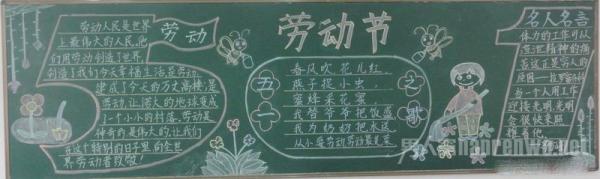 劳动
劳动人民是世界
上最伟大的人民,他
们用劳动创造了世界,
创造了我们今天幸福生活是劳动,
建成了今天的万丈高楼,是
劳动,让偌大的地球变成
了一个小小的村落。劳动是
神奇的是伟大的,让我们
在这个特别的日子里,向全世
界劳动者致敬!
劳动节
五一
之歌
春风吹,花儿红,
燕子捉小虫,
蜜蜂采花蜜,
我给爷爷把饭盛
我为奶奶把水送
从小爱劳动
名人名言
体力的工作可以
精神的痛
苦,这正是穷人的
当一个人用工作
迎接光明,光明
会很快来照
耀着他。